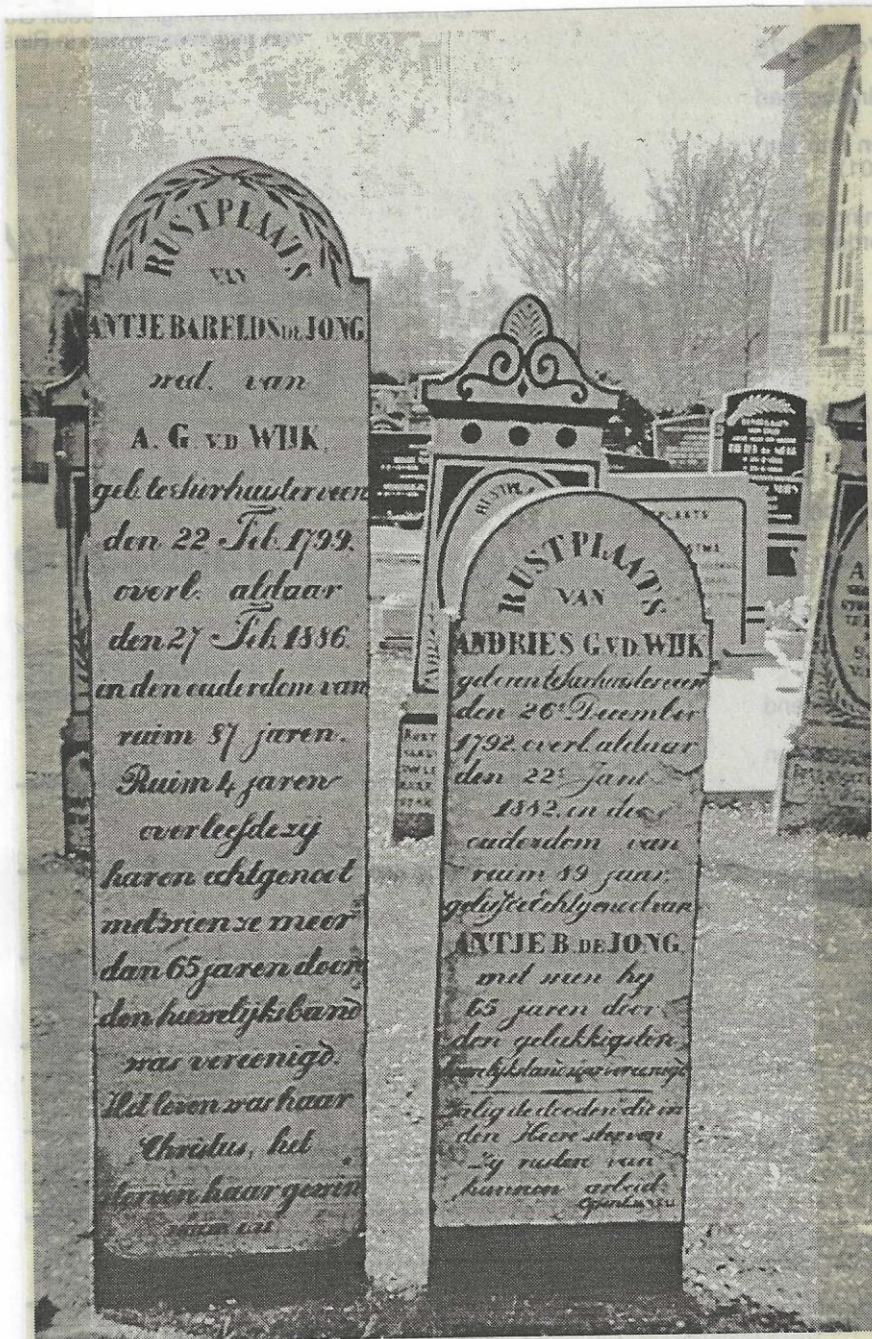 RUSTPLAATS
VAN
ANTJE BARELDS DE JONG
wed. van
A. G. V.D. WIJK.
geb. te Surhuisterveen
den 22 Feb. 1799.
overl. aldaar
den 27 Feb. 1886.
in den ouderdom van
ruim 87 jaren.
Ruim 4 jaren
overleefde zij
haren echtgenoot
met wien ze meer
dan 65 jaren door
den huwelijksband
was vereenigd.
Het leven was haar
Christus, het
sterven haar gewin
RUSTPLAATS
VAN
ANDRIES G. V.D. WIJK
geboren te Surhuisterveen
den 26e December
1792. overl. aldaar
den 22e Jani
1882. in den
ouderdom van
ruim 89 jaar,
geliefde echtgenoot van
ANTJE B. DE JONG.
met wien hij
65 jaren door
den gelukkigsten
huwelijksband was vereenigd
Zalig de dooden die in
den Heere sterven
Zij rusten van
hunnen arbeid
RUSTPL
PLAATS